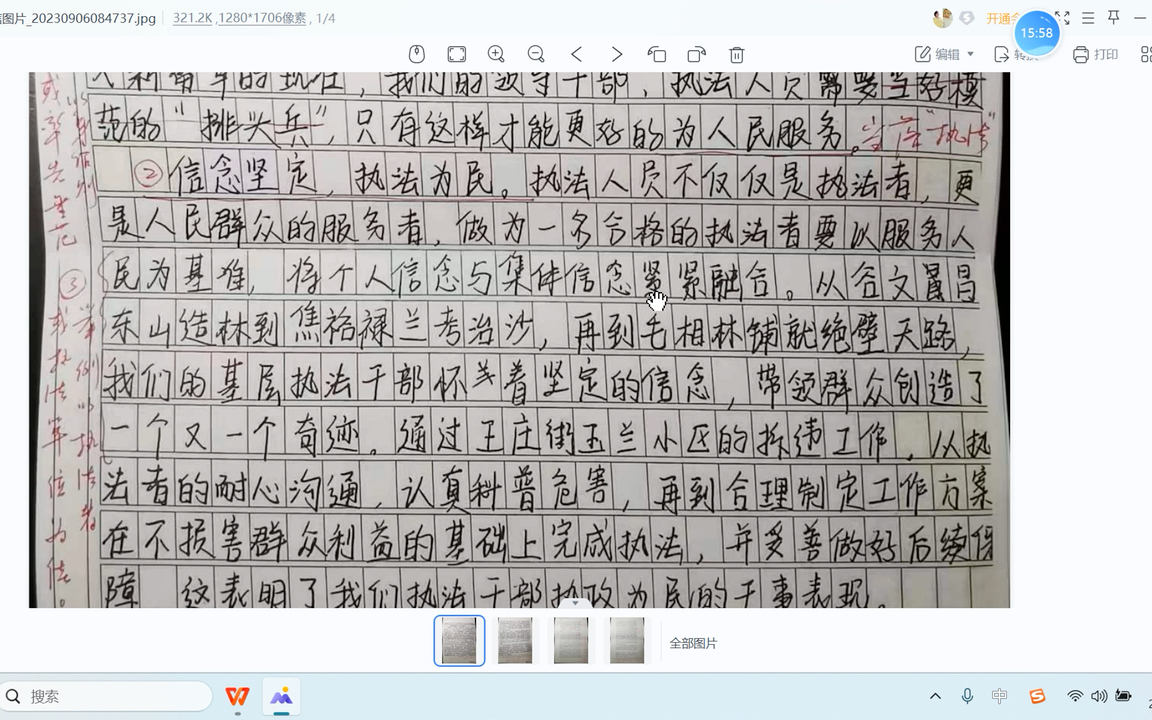 图片_20230906084737.jpg 321.2K ,1280*1706像素 , 1/4
15:58
编辑 打印
我们的领导干部、执法人员需要当好模
范的“排头兵”，只有这样才能更好的为人民服务。
②信念坚定，执法为民。执法人员不仅仅是执法者，更
是人民群众的服务者，做为一名合格的执法者要以服务人
民为基准，将个人信念与集体信念紧紧融合。从谷文昌
东山造林到焦裕禄兰考治沙，再到毛相林铺就绝壁天路，
我们的基层执法干部怀着坚定的信念，带领群众创造了
一个又一个奇迹。通过王庄街玉兰小区的拆违工作，从执
法者的耐心沟通，认真科普危害，再到合理制定工作方案
在不损害群众利益的基础上完成执法，并妥善做好后续保
障 这表明了我们执法干部执政为民的干事表现。
或
率
先
垂
范
③
执
法
单
位
为
佳。
全部图片
搜索
中